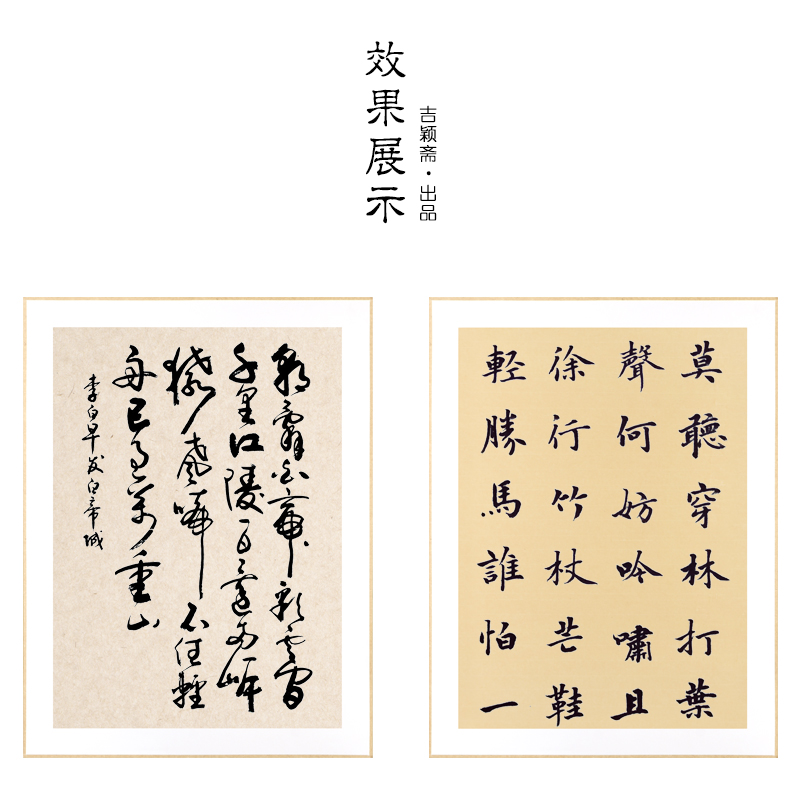 效果展示
吉颖斋·出品
朝辭白帝彩雲間
千里江陵一日還兩岸
猿聲啼不住輕
舟已過萬重山
李白早发白帝城
莫聽穿林打葉
聲何妨吟嘯且
徐行竹杖芒鞋
輕勝馬誰怕一